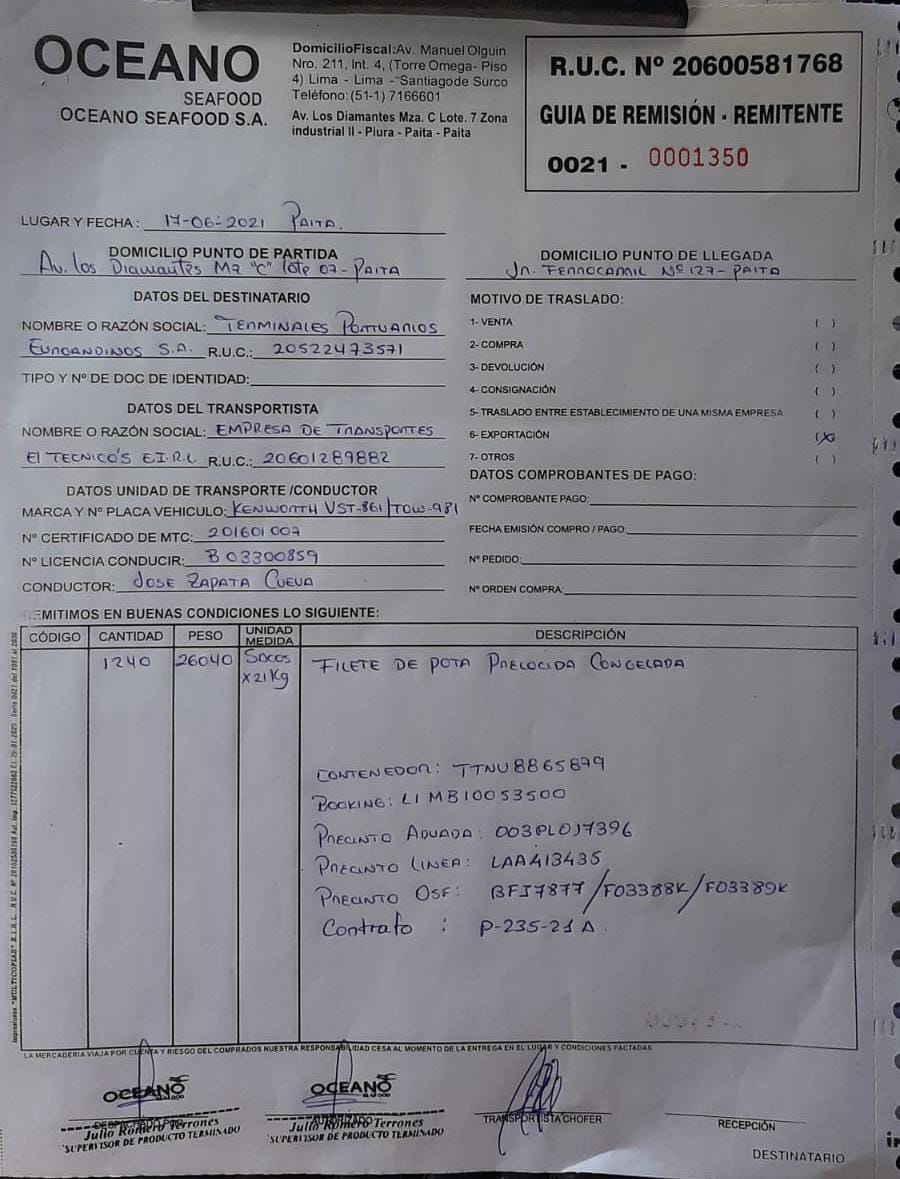 OCEANO
SEAFOOD
OCEANO SEAFOOD S.A.
DomicilioFiscal:Av. Manuel Olguin
Nro. 211, Int. 4, (Torre Omega- Piso
4) Lima - Lima - Santiagode Surco
Teléfono: (51-1) 7166601
Av. Los Diamantes Mza. C Lote. 7 Zona
industrial II - Piura - Paita - Paita
R.U.C. Nº 20600581768
GUIA DE REMISIÓN - REMITENTE
0021 - 0001350
LUGAR Y FECHA: 17-06-2021 PAITA.
DOMICILIO PUNTO DE PARTIDA
Av. los Diamantes Mz "C" lote 07-PAITA
DOMICILIO PUNTO DE LLEGADA
Jr. FERROCARRIL Nº 127-PAITA
DATOS DEL DESTINATARIO
NOMBRE O RAZÓN SOCIAL: TERMINALES PORTUARIOS
EUROANDINOS S.A. R.U.C.: 20522473571
TIPO Y Nº DE DOC DE IDENTIDAD:
DATOS DEL TRANSPORTISTA
NOMBRE O RAZÓN SOCIAL: EMPRESA DE TRANSPORTES
El TECNICO'S E.I.R.L R.U.C.: 20601289882
DATOS UNIDAD DE TRANSPORTE /CONDUCTOR
MARCA Y Nº PLACA VEHICULO: KENWORTH VST-861/TOW-981
Nº CERTIFICADO DE MTC: 201601007
Nº LICENCIA CONDUCIR: B 03300859
CONDUCTOR: JOSE ZAPATA CUEVA
MOTIVO DE TRASLADO:
1- VENTA ( )
2- COMPRA ( )
3- DEVOLUCIÓN ( )
4- CONSIGNACIÓN ( )
5- TRASLADO ENTRE ESTABLECIMIENTO DE UNA MISMA EMPRESA ( )
6- EXPORTACIÓN (X)
7- OTROS ( )
DATOS COMPROBANTES DE PAGO:
Nº COMPROBANTE PAGO:
FECHA EMISIÓN COMPRO / PAGO:
Nº PEDIDO:
Nº ORDEN COMPRA:
REMITIMOS EN BUENAS CONDICIONES LO SIGUIENTE:
CÓDIGO CANTIDAD PESO UNIDAD MEDIDA DESCRIPCIÓN
1240 26040 Sacos x21Kg FILETE DE POTA PRECOCIDA CONGELADA
CONTENEDOR: TTNU8865879
BOOKING: LIMB10053500
PRECINTO ADUADA: 003PL017396
PRECINTO LINEA: LAA413435
PRECINTO OSF: BFI7877/F03388K/F03389K
Contrato : P-235-21A.
LA MERCADERIA VIAJA POR CUENTA Y RIESGO DEL COMPRADOS NUESTRA RESPONSABILIDAD CESA AL MOMENTO DE LA ENTREGA EN EL LUGAR Y CONDICIONES PACTADAS
OCEANO
Julio Romero Terrones
SUPERVISOR DE PRODUCTO TERMINADO
OCEANO
Julio Romero Terrones
SUPERVISOR DE PRODUCTO TERMINADO
TRANSPORTISTA CHOFER
RECEPCIÓN
DESTINATARIO